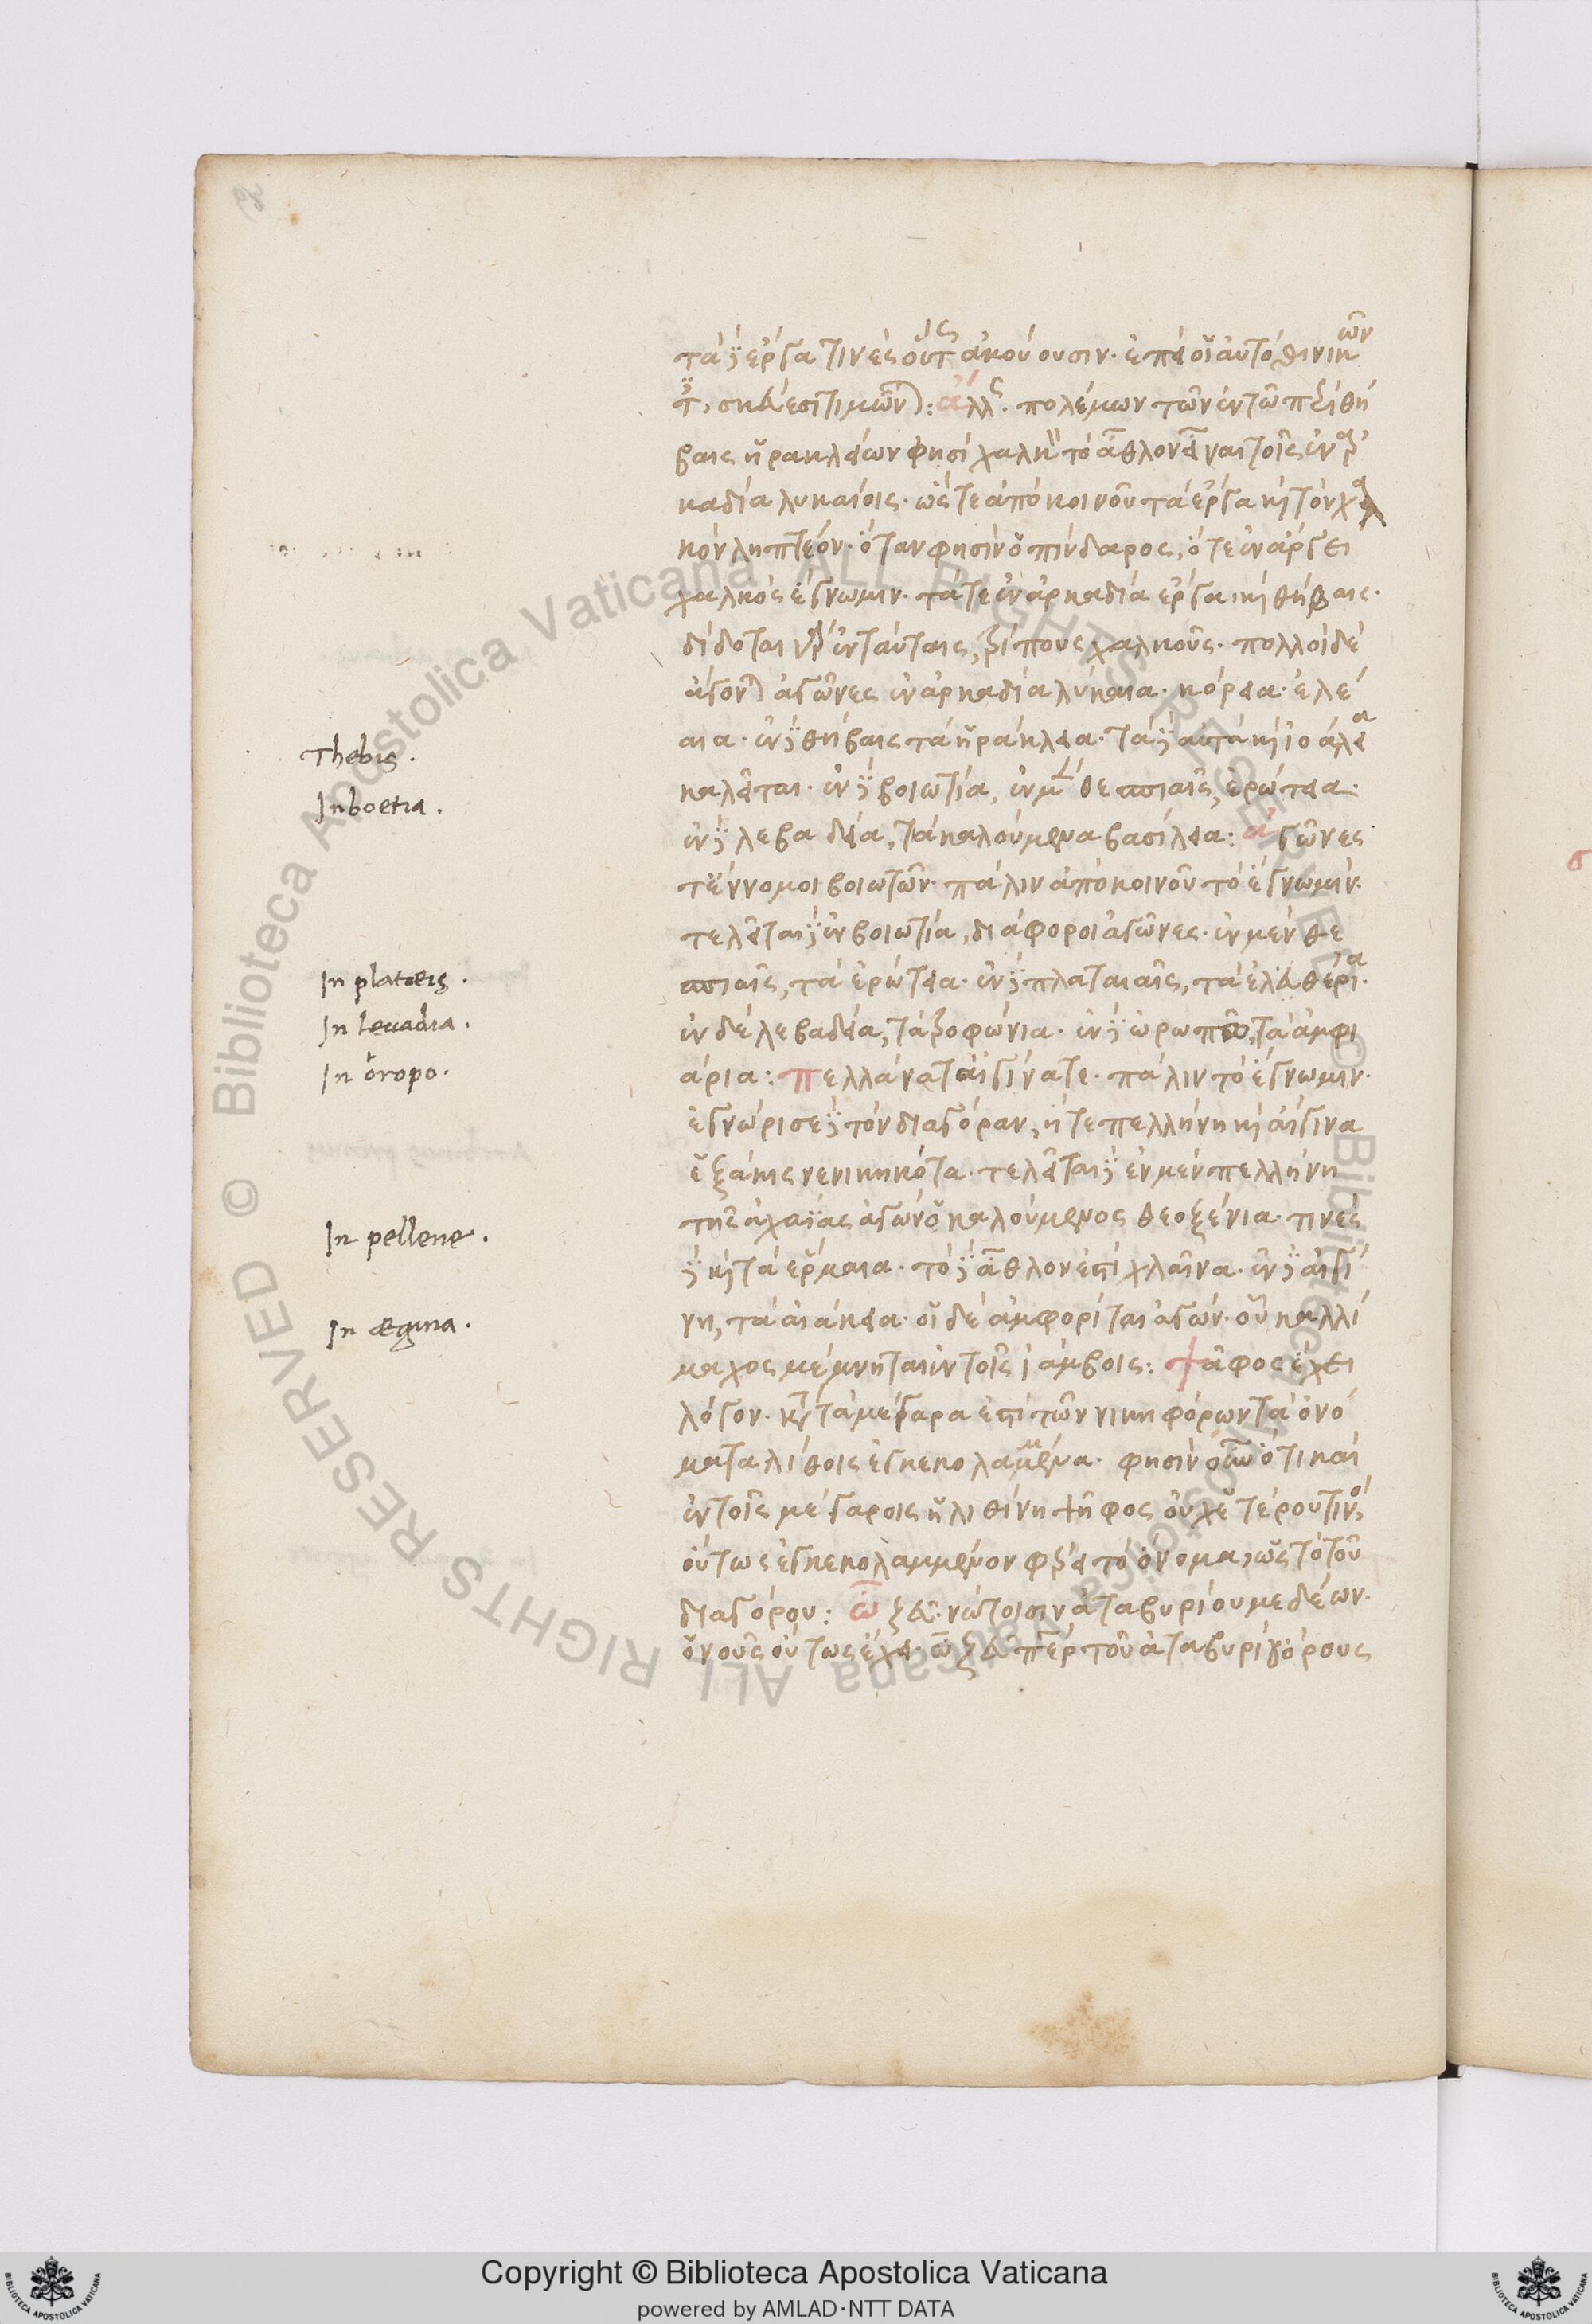 τὰ δὲ ἔργα τινὲς οὕτως ἀκούουσιν. ἐπεὶ οἱ αὐτόθι νικῶν
τες σκεύεσι τιμῶνται: ἄλλως. πολέμων τῶν ἐν τῶ περὶ θή
βαις ἡρακλείων φησὶ χαλκὸν τὸ ἆθλον εἶναι τοῖς ἐν ἀρ
καδία λυκαίοις. ὥστε ἀπὸ κοινοῦ τὰ ἔργα καὶ τὸν χαλ
κὸν ληπτέον. ὅταν φησὶν ὁ πίνδαρος, ὅ τε ἐν ἄργει
χαλκὸς ἔγνω μιν. τά τε ἐν ἀρκαδία ἔργα καὶ θήβαις.
δίδοται γὰρ ἐν ταύταις, τρίπους χαλκοῦς. πολλοὶ δὲ
ἄγονται ἀγῶνες ἐν ἀρκαδία λύκαια. κόρεια. ἐλεί
αια. ἐν δὲ θήβαις τὰ ἡράκλεια. τὰ δὲ αὐτὰ καὶ ἰολάεια
καλεῖται. ἐν δὲ βοιωτία, ἐν μὲν θεσπιαῖς, ἐρώτεια.
ἐν δὲ λεβαδεία, τὰ καλούμενα βασίλεια: ἀγῶνες
τ' ἔννομοι βοιωτῶν. πάλιν ἀπὸ κοινοῦ τὸ ἔγνω μιν.
τελεῖται δὲ ἐν βοιωτία, διάφοροι ἀγῶνες. ἐν μὲν θε
σπιαῖς, τὰ ἐρώτεια. ἐν δὲ πλαταιαῖς, τὰ ἐλευθέρια.
ἐν δὲ λεβαδεία, τὰ τροφώνια. ἐν δὲ ὠρωπῶ, τὰ ἀμφι
άρια: πελλάνα τ' αἴγινά τε. πάλιν τὸ ἔγνω μιν.
ἐγνώρισε δὲ τὸν διαγόραν, ἥ τε πελλήνη καὶ αἴγινα
ἑξάκις νενικηκότα. τελεῖται δὲ ἐν μὲν πελλήνη
τῆς ἀχαΐας ἀγὼν ὁ καλούμενος θεοξένια. τινὲς
δὲ καὶ τὰ ἕρμαια. τὸ δὲ ἆθλον ἐστὶ χλαῖνα. ἐν δὲ αἰγί
νη, τὰ αἰάκεια. οἱ δὲ ἀμφορίται ἀγών. οὗ καλλί
μαχος μέμνηται ἐν τοῖς ἰάμβοις: ψᾶφος ἔχει
λόγον. κατὰ τὰ μέγαρα ἐπὶ τῶν νικηφόρων τὰ ὀνό
ματα λίθοις ἐγκεκολαμμένα. φησὶν οὖν ὅτι καὶ
ἐν τοῖς μεγάροις ἡ λιθίνη ψῆφος οὐχ ἑτέρου τινὸς
οὕτως ἐγκεκολαμμένον φέρει τὸ ὄνομα, ὡς τὸ τοῦ
διαγόρου: ὦ ζεῦ. νώτοισιν ἀταβυρίου μεδέων.
ὁ νοῦς οὕτως ἔχει. ὦ ζεῦ πάτερ τοῦ ἀταβυρίου ὄρους
Thebis.
In boetia.
In plataeis.
In levadia.
In oropo.
In pellene.
In aegina.
Copyright © Biblioteca Apostolica Vaticana
powered by AMLAD·NTT DATA